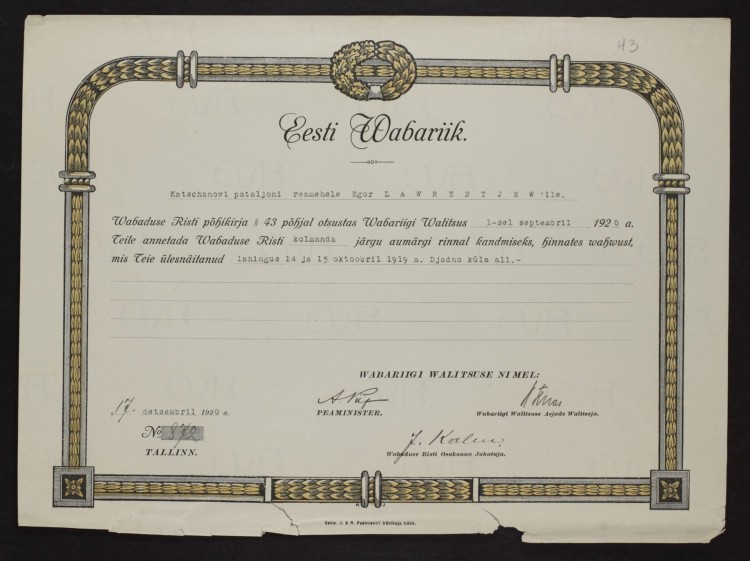 43
Eesti Wabariik.
Katschanowi pataljoni reamehele Egor LAWRENTJEW'ile.
Wabaduse Risti põhikirja § 43 põhjal otsustas Wabariigi Walitsus 1-sel septembril 1920 a.
Teile annetada Wabaduse Risti kolmanda järgu aumärgi rinnal kandmiseks, hinnates wahwust,
mis Teie ülesnäitanud lahingus 14 ja 15 oktoobril 1919 a. Djadno küla all.-
WABARIIGI WALITSUSE NIMEL:
17. detsembril 1920 a.
PEAMINISTER.
Wabariigi Walitsuse Asjade Walitseja.
No 872
J. Kalm.
TALLINN.
Wabaduse Risti Osakonna Juhataja.